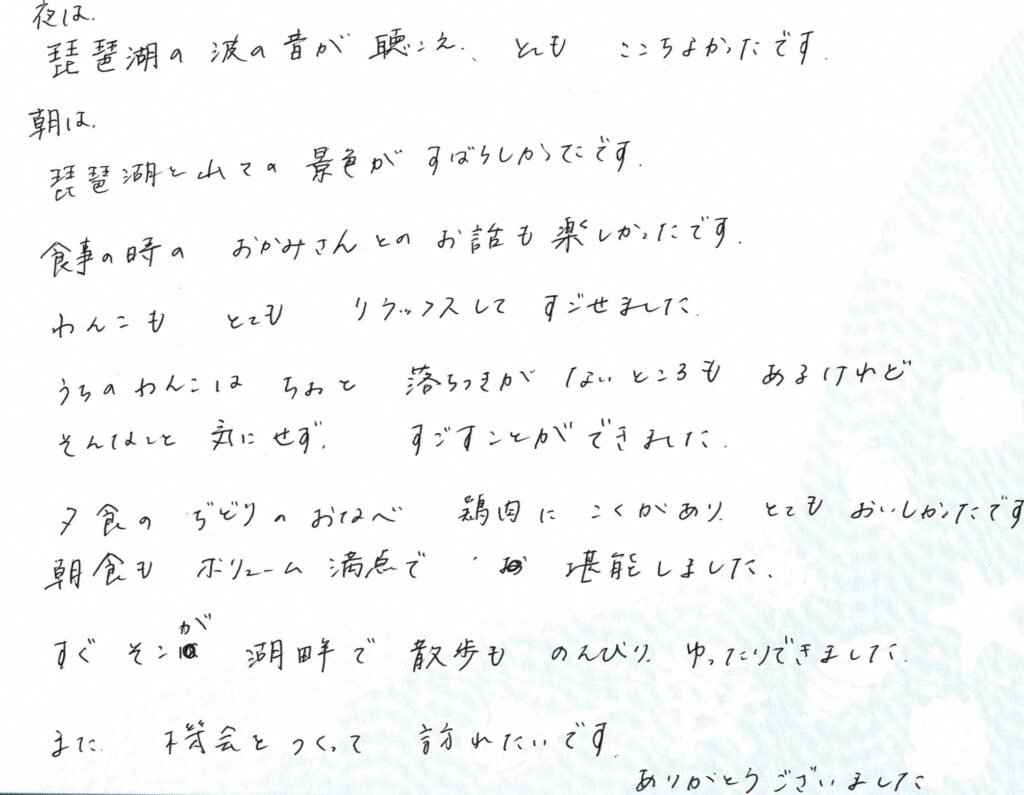 夜は、
琵琶湖の波の音が聴こえ、とても ここちよかったです.
朝は、
琵琶湖と山々の景色が すばらしかったです.
食事の時の おかみさんとの お話も楽しかったです.
わんこも とても リラックスして すごせました.
うちのわんこは ちょっと 落ちつきが ないところも あるけれど
そんなこと 気にせず、 すごすことができました.
夕食の ぢどりのおなべ 鶏肉に こくがあり、とても おいしかったです
朝食も ボリューム満点で 堪能しました.
すぐ そこが 湖畔で 散歩も のんびり、ゆったりできました.
また 機会を つくって 訪れたいです.
ありがとうございました